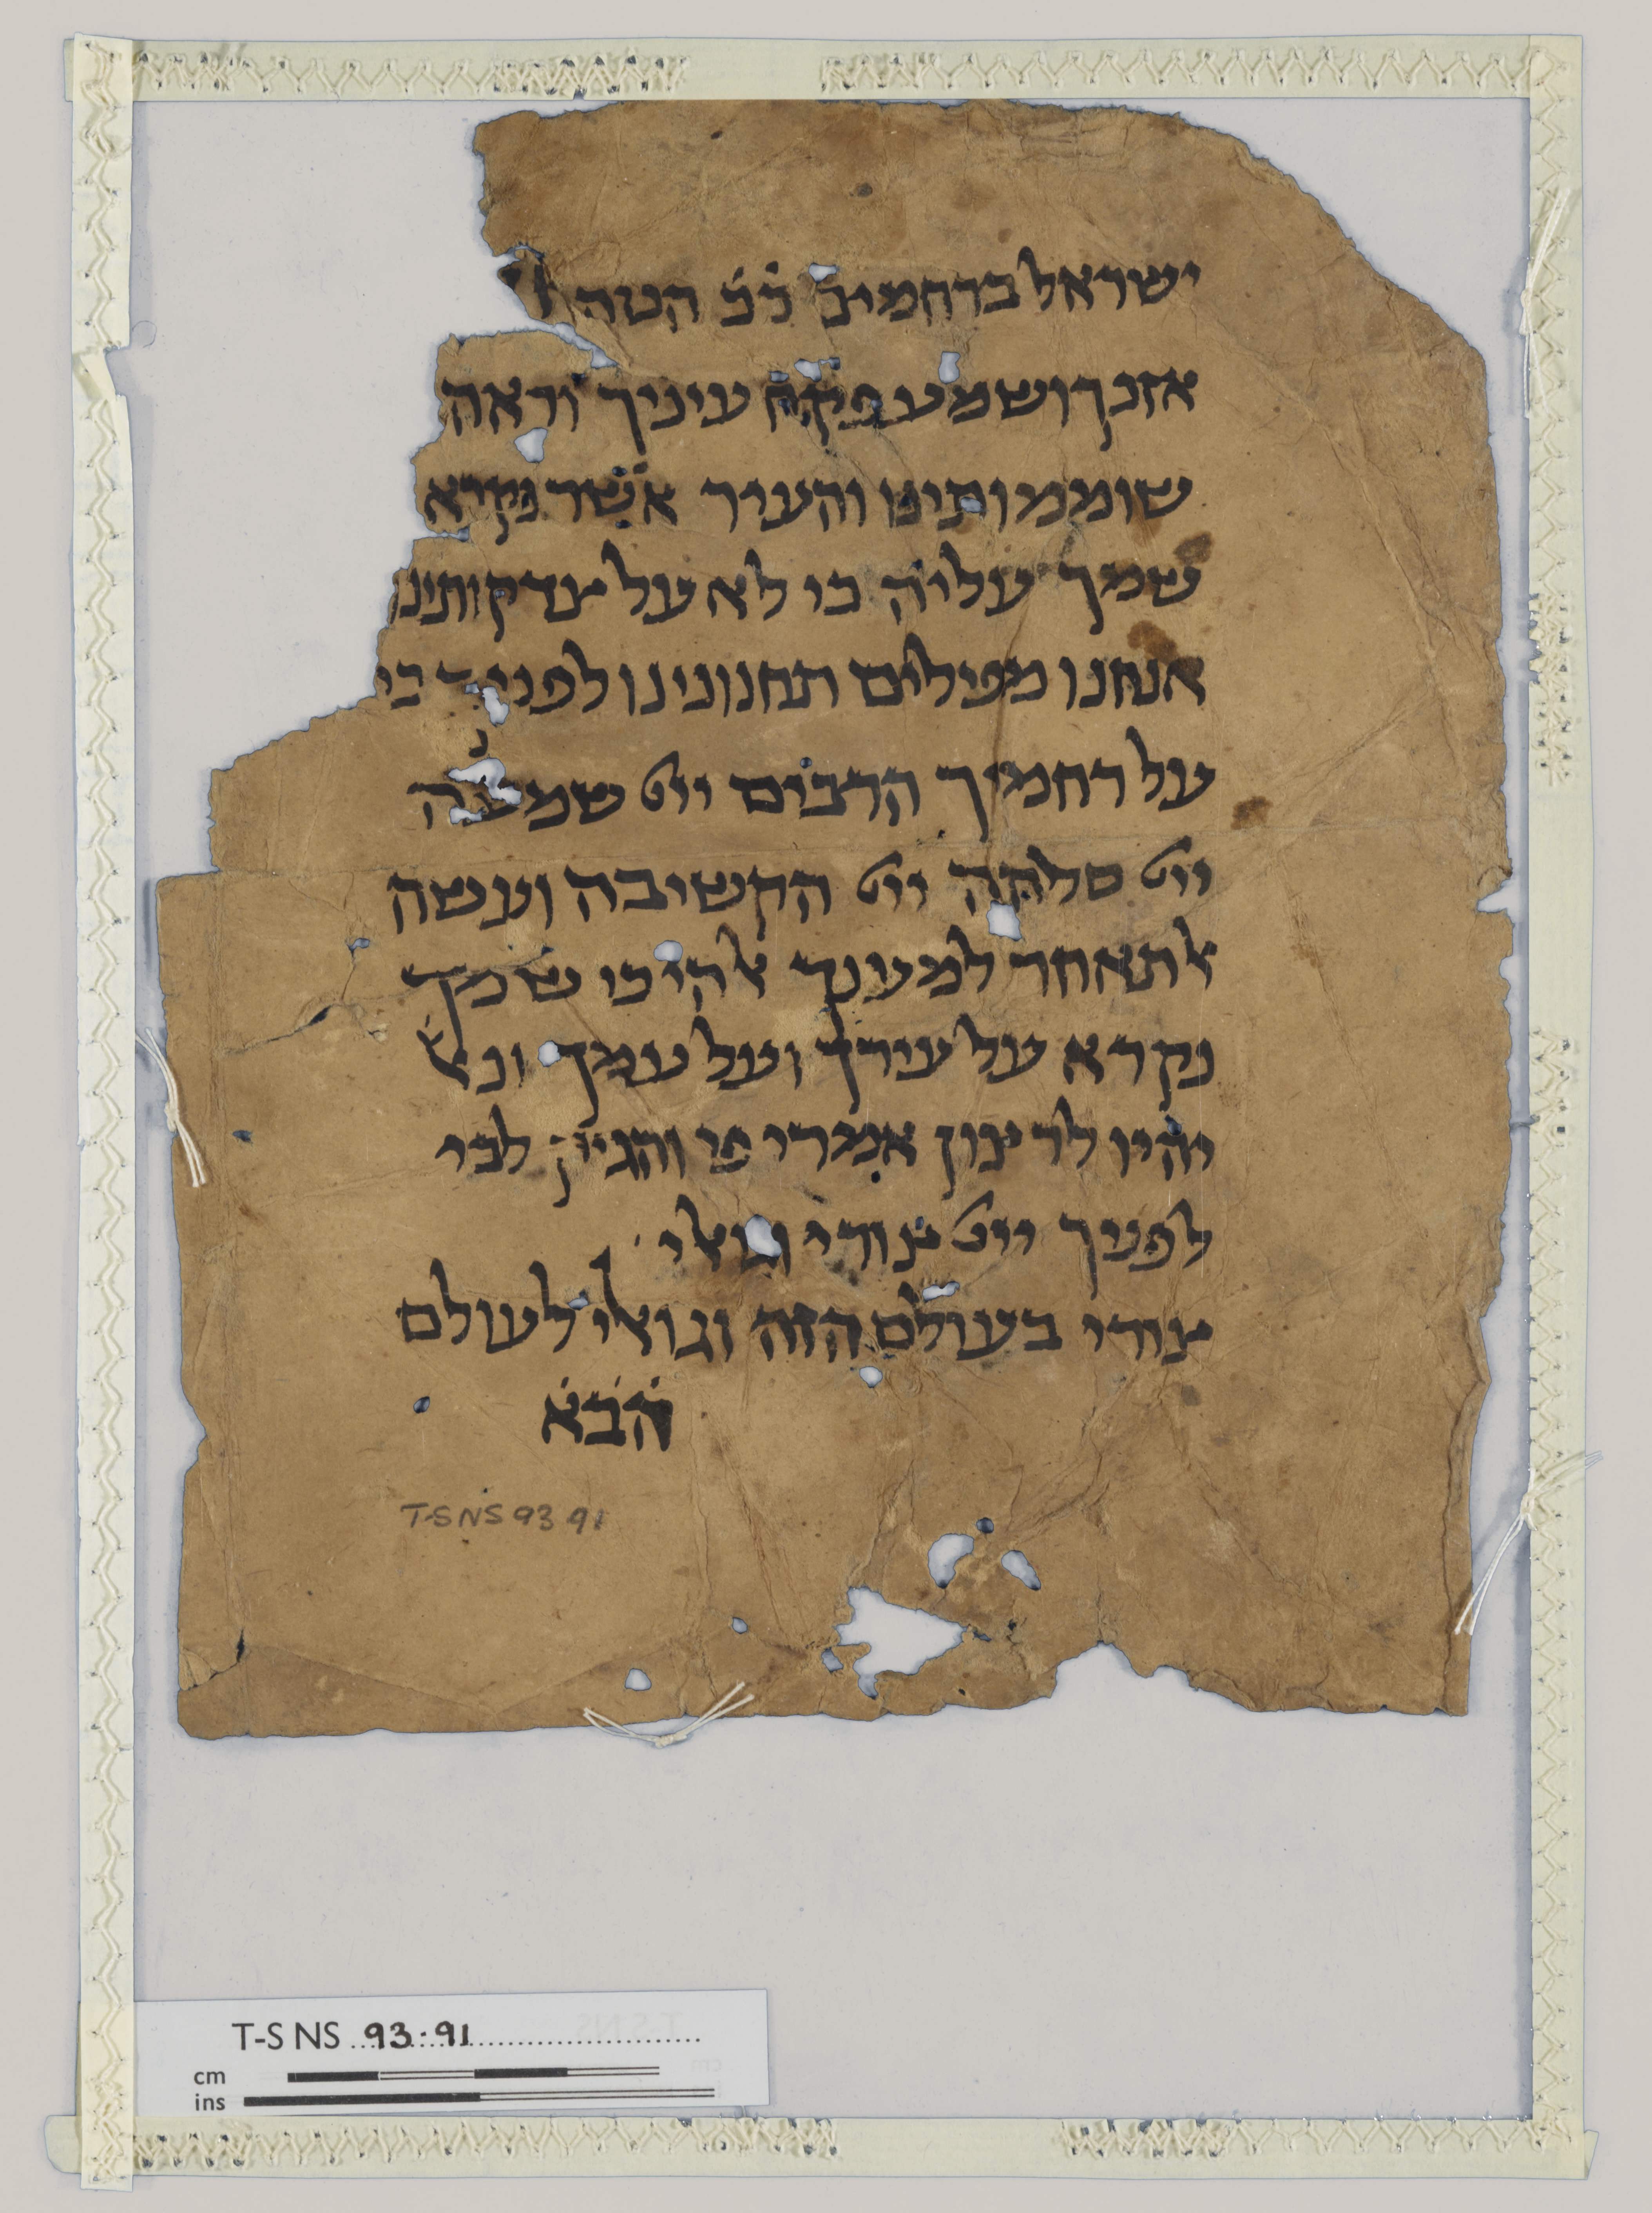 ישראל ברחמיך ככ הטה
אזנך ושמע פקח עיניך וראה
שוממותינו והעיר אשר נקרא
שמך עליה כי לא על צדקותינו
אנחנו מפילים תחנונינו לפניך כי
על רחמיך הרבים ייי שמעה
ייי סלחה ייי הקשיבה ועשה
אל תאחר למענך אלהי כי שמך
נקרא על עירך ועל עמך וכל
יהיו לרצון אמרי פי והגיון לבי
לפניך ייי צורי וגואלי
צורי בעולם הזה וגואלי לעולם
הבא
T-S NS 93 91
T-S NS 93.91
cm
ins